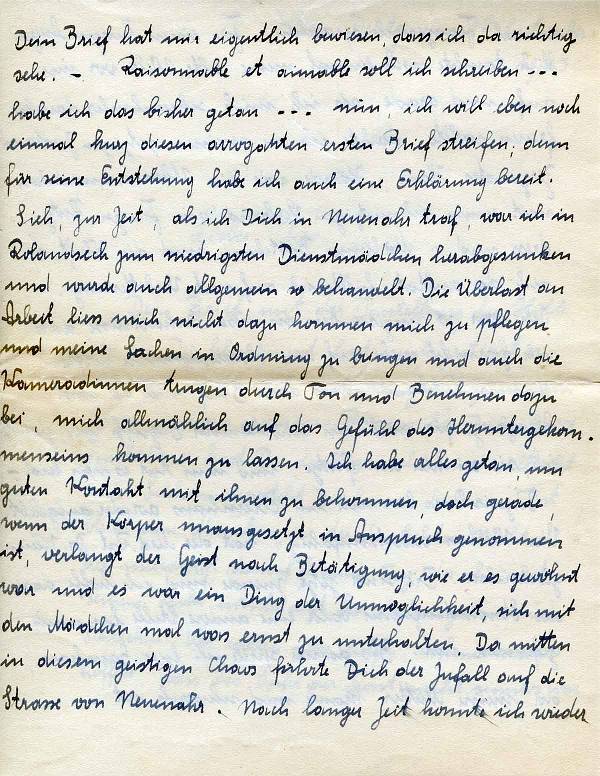 Dein Brief hat mir eigentlich bewiesen, dass ich da richtig
sehe. – Raisonnable et aimable soll ich schreiben - - -
habe ich das bisher getan - - - nun, ich will eben noch
einmal kurz diesen arroganten ersten Brief streifen, denn
für seine Entstehung habe ich auch eine Erklärung bereit.
Sieh, zur Zeit, als ich Dich in Neuenahr traf, war ich in
Rolandseck zum niedrigsten Dienstmädchen herabgesunken
und wurde auch allgemein so behandelt. Die Überlast an
Arbeit liess mich nicht dazu kommen mich zu pflegen
und meine Sachen in Ordnung zu bringen und auch die
Kameradinnen trugen durch Ton und Benehmen dazu
bei, mich allmählich auf das Gefühl des Heruntergekom-
menseins kommen zu lassen. Ich habe alles getan, um
guten Kontakt mit ihnen zu bekommen, doch gerade,
wenn der Körper unausgesetzt in Anspruch genommen
ist, verlangt der Geist nach Betätigung, wie er es gewöhnt
war und es war ein Ding der Unmöglichkeit, sich mit
den Mädchen mal was ernst zu unterhalten. Da mitten
in diesem geistigen Chaos führte Dich der Zufall auf die
Strasse von Neuenahr. Nach langer Zeit konnte ich wieder